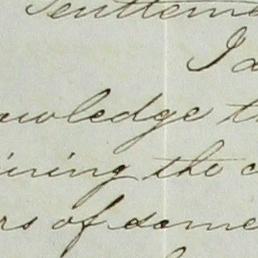 Gentlemen
I a
owledge th
ining the c
rs of some